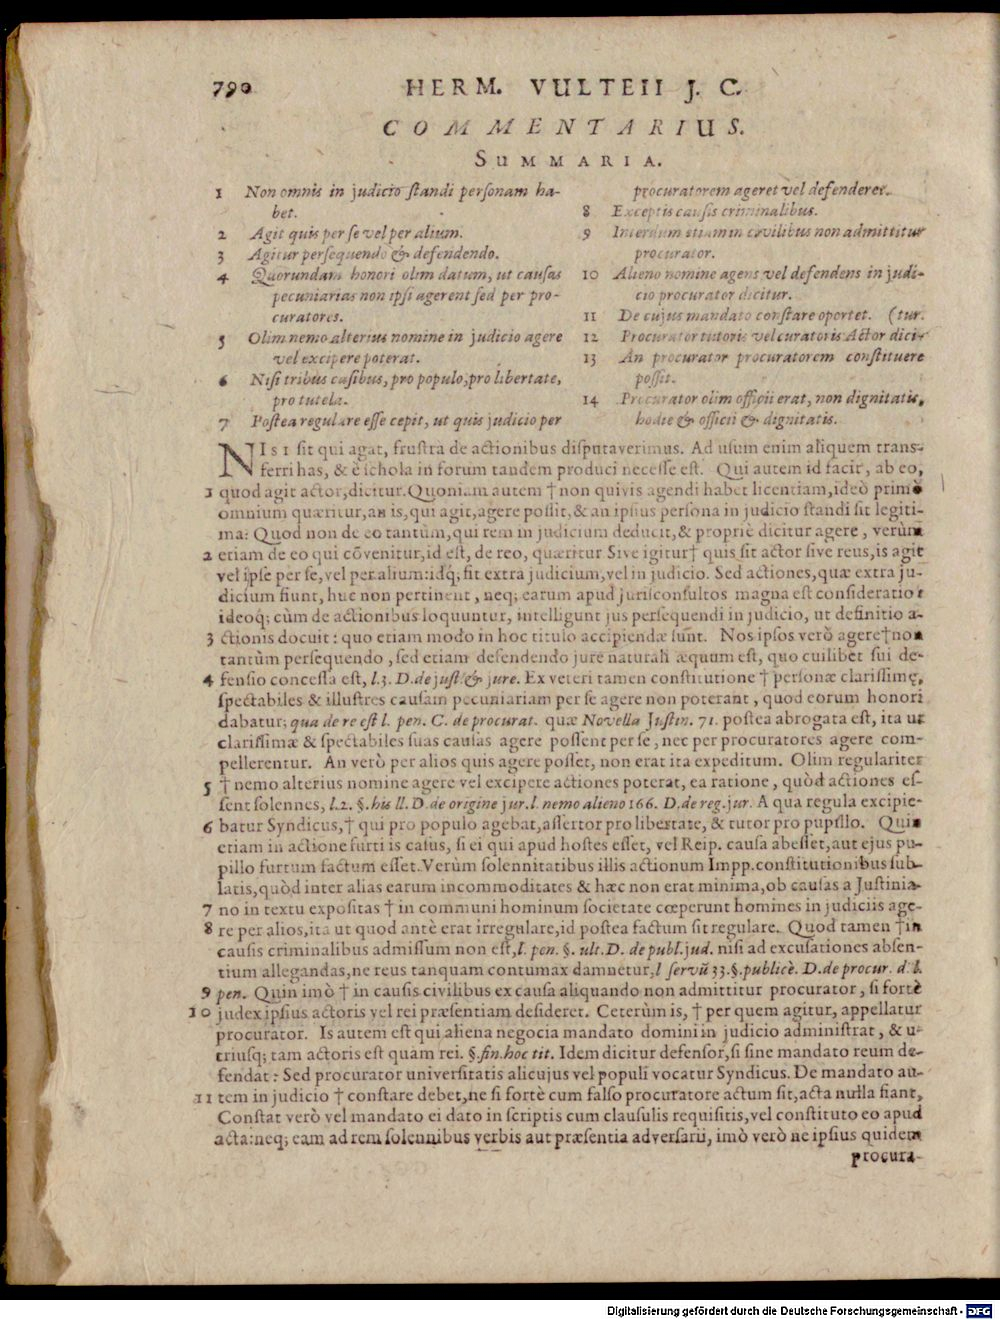 790 HERM. VULTEII J. C.
COMMENTARIUS.
SUMMARIA.
1 Non omnis in judicio standi personam ha-
bet.
2 Agit quis per se vel per alium.
3 Agitur persequendo & defendendo.
4 Quorundam honori olim datum, ut causas
pecuniarias non ipsi agerent sed per pro-
curatores.
5 Olim nemo alterius nomine in judicio agere
vel excipere poterat.
6 Nisi tribus casibus, pro populo, pro libertate,
pro tutela.
7 Postea regulare esse cepit, ut quis judicio per
procuratorem ageret vel defenderet.
8 Exceptis causis criminalibus.
9 Interdum etiam in civilibus non admittitur
procurator.
10 Alieno nomine agens vel defendens in judi-
cio procurator dicitur.
11 De cujus mandato constare oportet. (tur.
12 Procurator tutoris vel curatoris Actor dici-
13 An procurator procuratorem constituere
possit.
14 Procurator olim officii erat, non dignitatis,
hodie & officii & dignitatis.
NISI sit qui agat, frustra de actionibus disputaverimus. Ad usum enim aliquem trans-
ferri has, & è schola in forum tandem produci necesse est. Qui autem id facit, ab eo,
1 quod agit actor, dicitur. Quoniam autem † non quivis agendi habet licentiam, ideò primò
omnium quæritur, an is, qui agit, agere possit, & an ipsius persona in judicio standi sit legiti-
ma: Quod non de eo tantùm, qui rem in judicium deducit, & propriè dicitur agere, verùm
2 etiam de eo qui cōvenitur, id est, de reo, quæritur Sive igitur † quis sit actor sive reus, is agit
vel ipse per se, vel per alium: idq; fit extra judicium, vel in judicio. Sed actiones, quæ extra ju-
dicium fiunt, huc non pertinent, neq; earum apud jurisconsultos magna est consideratio:
ideoq; cùm de actionibus loquuntur, intelligunt jus persequendi in judicio, ut definitio a-
3 ctionis docuit: quo etiam modo in hoc titulo accipiendæ sunt. Nos ipsos verò agere † non
tantùm persequendo, sed etiam defendendo jure naturali æquum est, quo cuilibet sui de-
4 fensio concessa est, l. 3. D. de just. & jure. Ex veteri tamen constitutione † personæ clarissimę,
spectabiles & illustres causam pecuniariam per se agere non poterant, quod eorum honori
dabatur; qua de re est l. pen. C. de procurat. quæ Novella Justin. 71. postea abrogata est, ita ut
clarissimæ & spectabiles suas causas agere possent per se, nec per procuratores agere com-
pellerentur. An verò per alios quis agere posset, non erat ita expeditum. Olim regulariter
5 † nemo alterius nomine agere vel excipere actiones poterat, ea ratione, quòd actiones es-
sent solennes, l. 2. §. his ll. D. de origine jur. l. nemo alieno 166. D. de reg. jur. A qua regula excipie-
6 batur Syndicus, † qui pro populo agebat, assertor pro libertate, & tutor pro pupillo. Quin
etiam in actione furti is casus, si ei qui apud hostes esset, vel Reip. causa abesset, aut ejus pu-
pillo furtum factum esset. Verùm solennitatibus illis actionum Impp. constitutionibus sub-
latis, quòd inter alias earum incommoditates & hæc non erat minima, ob causas a Justinia-
7 no in textu expositas † in communi hominum societate cœperunt homines in judiciis age-
8 re per alios, ita ut quod antè erat irregulare, id postea factum sit regulare. Quod tamen † in
causis criminalibus admissum non est, l. pen. §. ult. D. de publ. jud. nisi ad excusationes absen-
tium allegandas, ne reus tanquam contumax damnetur, l servū 33. §. publicè. D. de procur. d. l.
9 pen. Quin imò † in causis civilibus ex causa aliquando non admittitur procurator, si fortè
10 judex ipsius actoris vel rei præsentiam desideret. Ceterùm is, † per quem agitur, appellatur
procurator. Is autem est qui aliena negocia mandato domini in judicio administrat, & u-
triusq; tam actoris est quàm rei. §. fin. hoc tit. Idem dicitur defensor, si sine mandato reum de-
fendat: Sed procurator universitatis alicujus vel populi vocatur Syndicus. De mandato au-
11 tem in judicio † constare debet, ne si fortè cum falso procuratore actum sit, acta nulla fiant,
Constat verò vel mandato ei dato in scriptis cum clausulis requisitis, vel constituto eo apud
acta: neq; eam ad rem solennibus verbis aut præsentia adversarii, imò verò ne ipsius quidem
procura-
Digitalisierung gefördert durch die Deutsche Forschungsgemeinschaft - DFG